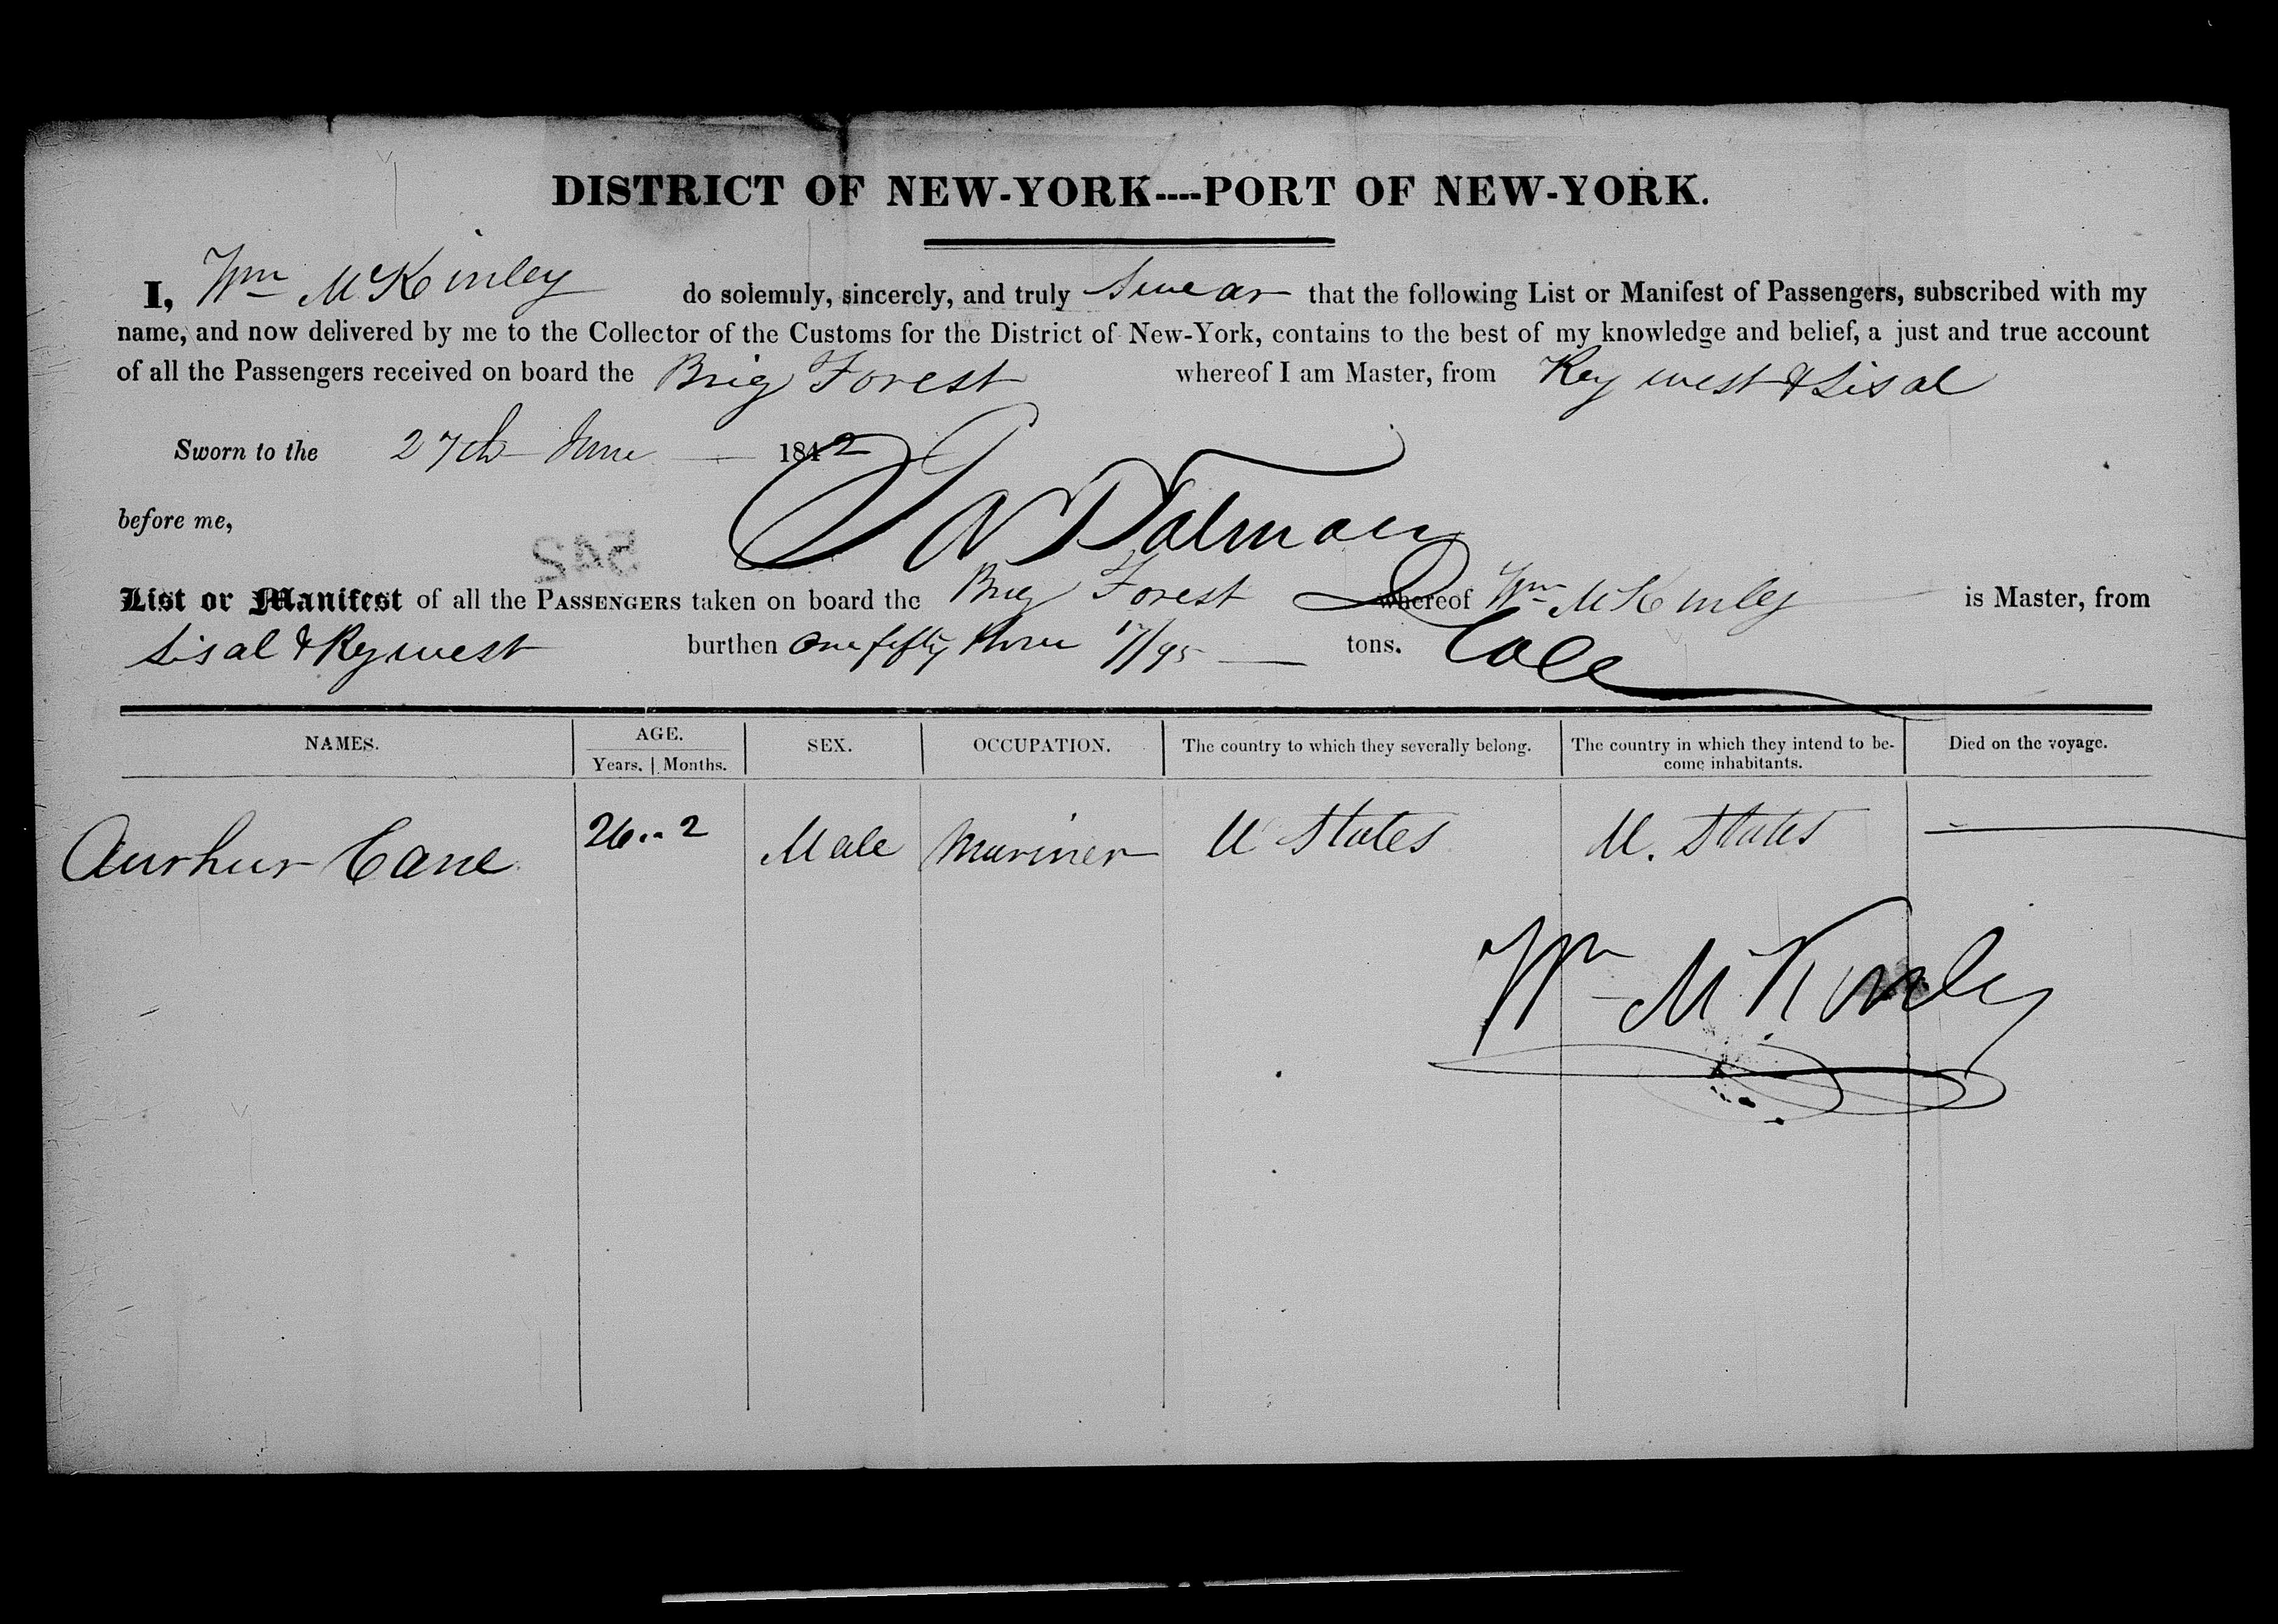 DISTRICT OF NEW-YORK----PORT OF NEW-YORK.
I, Wm McKinley do solemnly, sincerely, and truly Swear that the following List or Manifest of Passengers, subscribed with my
name, and now delivered by me to the Collector of the Customs for the District of New-York, contains to the best of my knowledge and belief, a just and true account
of all the Passengers received on board the Brig Forest whereof I am Master, from Key west & Sisal
Sworn to the 27th June 1842
before me,
542
List or Manifest of all the PASSENGERS taken on board the Brig Forest whereof Wm McKinley is Master, from
Sisal & Key west burthen One fifty three 17/95 tons. Coll
NAMES. AGE. SEX. OCCUPATION. The country to which they severally belong. The country in which they intend to be-
come inhabitants. Died on the voyage.
Years. | Months.
Aurhur Cane 26 .. 2 Male Mariner U States U. States
Wm McKinley